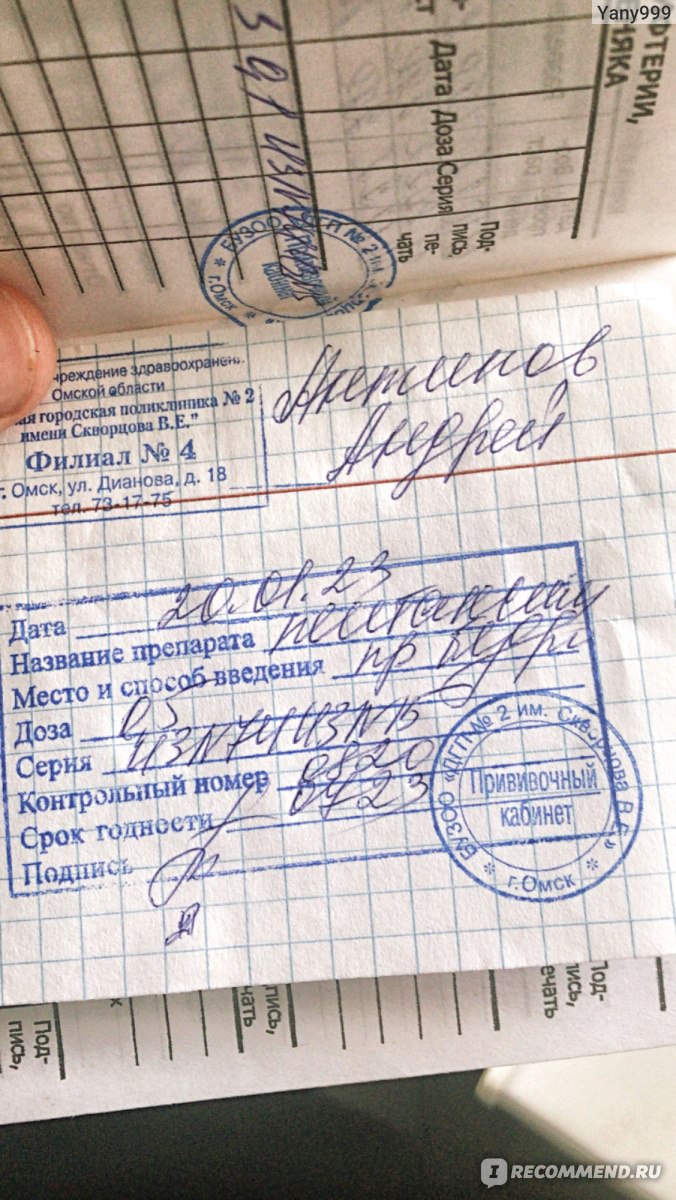 Yany999
РТЕРИИ,
ЛЯКА
Дата Доза Серия
Под-
пись
пе-
чать
БУЗОО
№ 2
г.Омск
кабинет
чреждение здравоохранен
Омской области
ая городская поликлиника № 2
имени Скворцова В.Е."
Филиал № 4
г. Омск, ул. Дианова, д. 18
тел. 73-17-75
Антипов
Андрей
Дата 20.01.23
Название препарата пентаксим
Место и способ введения пр бедро
Доза 0,5
Серия
Контрольный номер 0820
Срок годности 0423
Подпись
БУЗОО «ДГП № 2 им. Скворцова В.Е.»
Прививочный
кабинет
г.Омск
Под-
пись,
чать
пись,
Под-
пись,
ечать
IRECOMMEND.RU